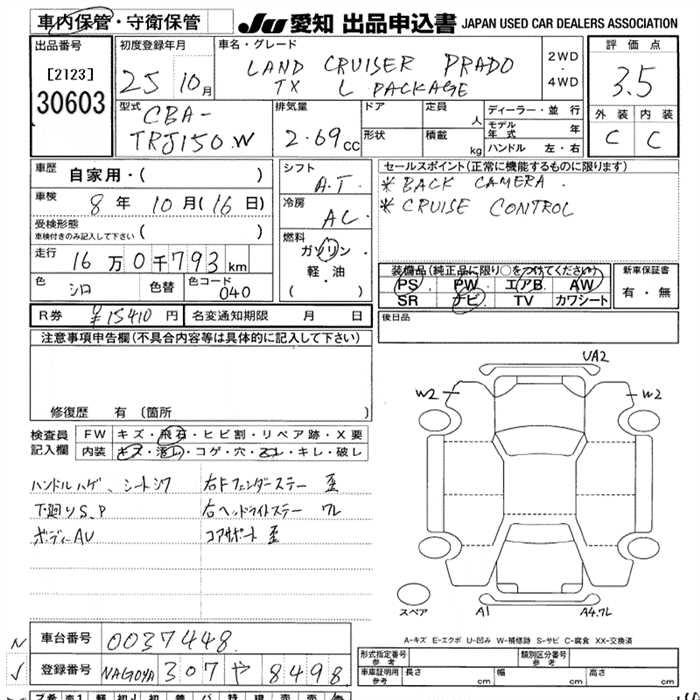 車内保管・守衛保管
JU 愛知 出品申込書 JAPAN USED CAR DEALERS ASSOCIATION
出品番号
[2123]
30603
初度登録年月
25 10月
車名・グレード
LAND CRUISER PRADO
TX L PACKAGE
2WD
・
4WD
評価点
3.5
外装 内装
C C
型式
CBA-
TRJ150W
排気量
2.69cc
ドア
形状
定員 人
積載 kg
ディーラー・並行
モデル年式 年
ハンドル 左・右
車歴 自家用・( )
車検 8年 10月(16日)
受検形態
車検付きのみ記入して下さい ( )
走行 16万0千793km
色 シロ 色替 色コード 040
シフト
A.T.
冷房
AC
燃料
ガソリン
・
軽・油
( ・ )
セールスポイント(正常に機能するものに限ります)
* BACK CAMERA.
* CRUISE CONTROL
装備品(純正品に限り○をつけてください)
PS PW エアB AW
SR ナビ TV カワシート
新車保証書
有・無
R券 ¥15410円 名変通知期限 月 日
後日品
注意事項申告欄(不具合内容等は具体的に記入して下さい)
修復歴 有 (箇所
検査員記入欄
FW キズ・飛石・ヒビ割・リペア跡・X要
内装 キズ・汚レ・コゲ・穴・スレ・キレ・破レ
ハンドルハゲ、シートシワ 右Fフェンダーステー 歪
下廻りS,P 右ヘッドライトステー ワレ
ボディーAU コアサポート 歪
UA2
W2 W2
スペア
A1 A4.ワレ
A-キズ E-エクボ U-凹み W-補修跡 S-サビ C-腐食 XX-交換済
N 車台番号 0037448
✓ 登録番号 NAGOYA 307 や 8498
形式指定番号
参考
類別区分番号
参考
車庫証明用
参考
長さ cm 幅 cm 高さ cm